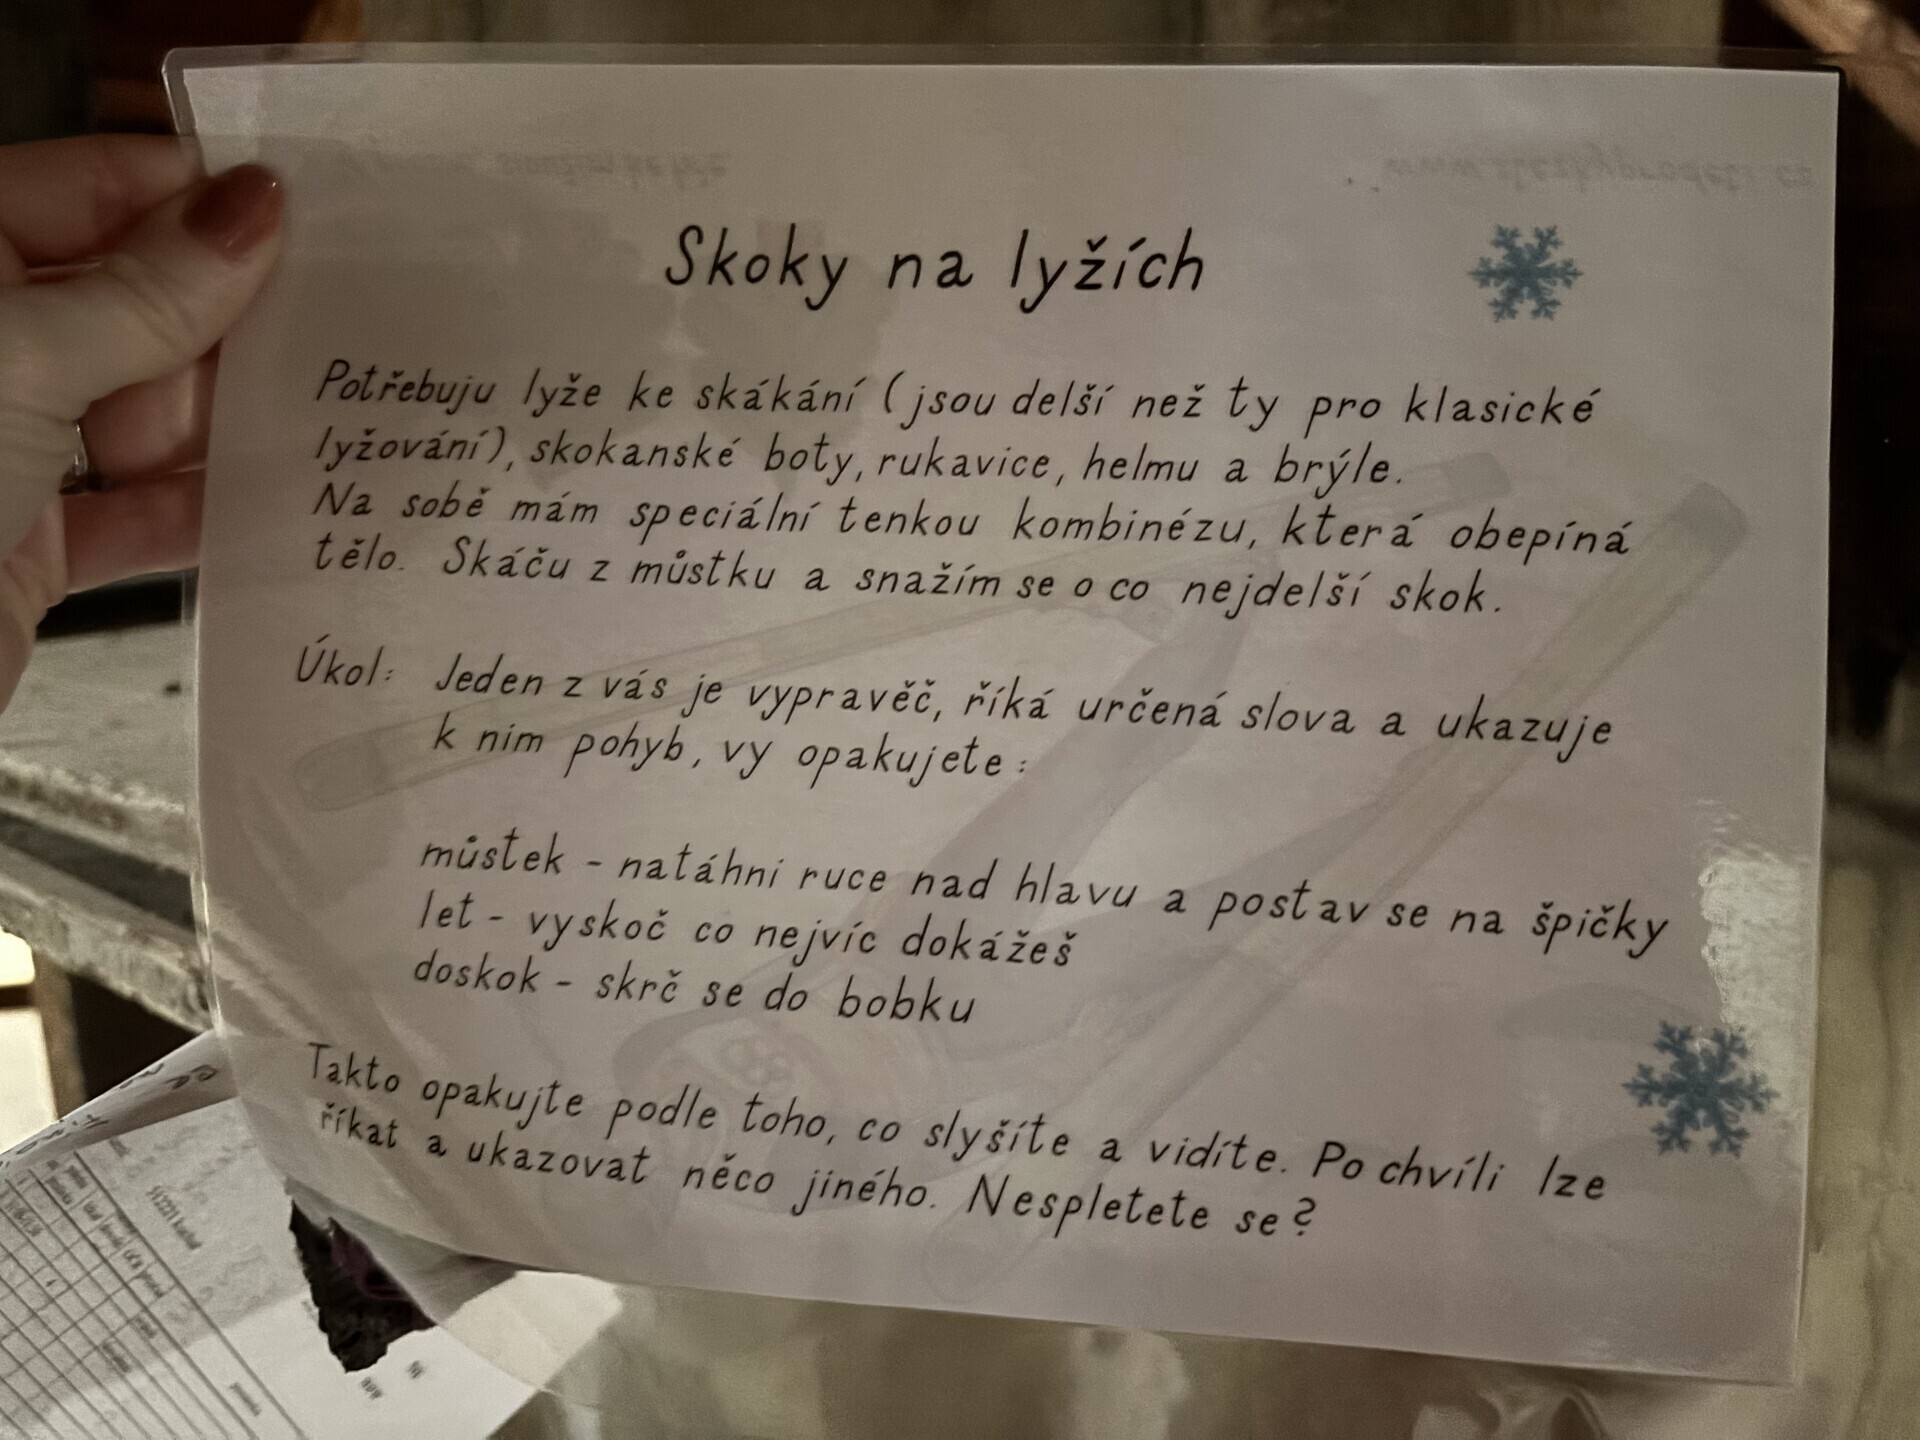 Skoky na lyžích
Potřebuju lyže ke skákání (jsou delší než ty pro klasické
lyžování), skokanské boty, rukavice, helmu a brýle.
Na sobě mám speciální tenkou kombinézu, která obepíná
tělo. Skáču z můstku a snažím se o co nejdelší skok.
Úkol: Jeden z vás je vypravěč, říká určená slova a ukazuje
k nim pohyb, vy opakujete:
můstek - natáhni ruce nad hlavu a postav se na špičky
let - vyskoč co nejvíc dokážeš
doskok - skrč se do bobku
Takto opakujte podle toho, co slyšíte a vidíte. Po chvíli lze
říkat a ukazovat něco jiného. Nespletete se?